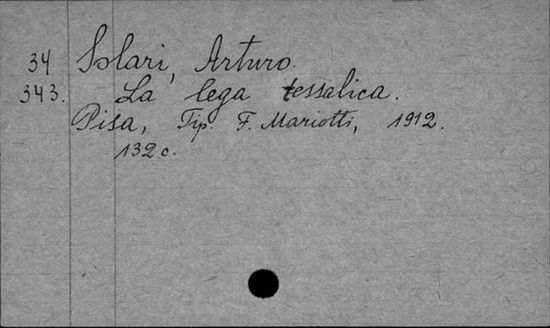 34 Solari, Arturo.
343. La lega tessalica.
Pisa, Tip. F. Mariotti, 1912.
132 c.